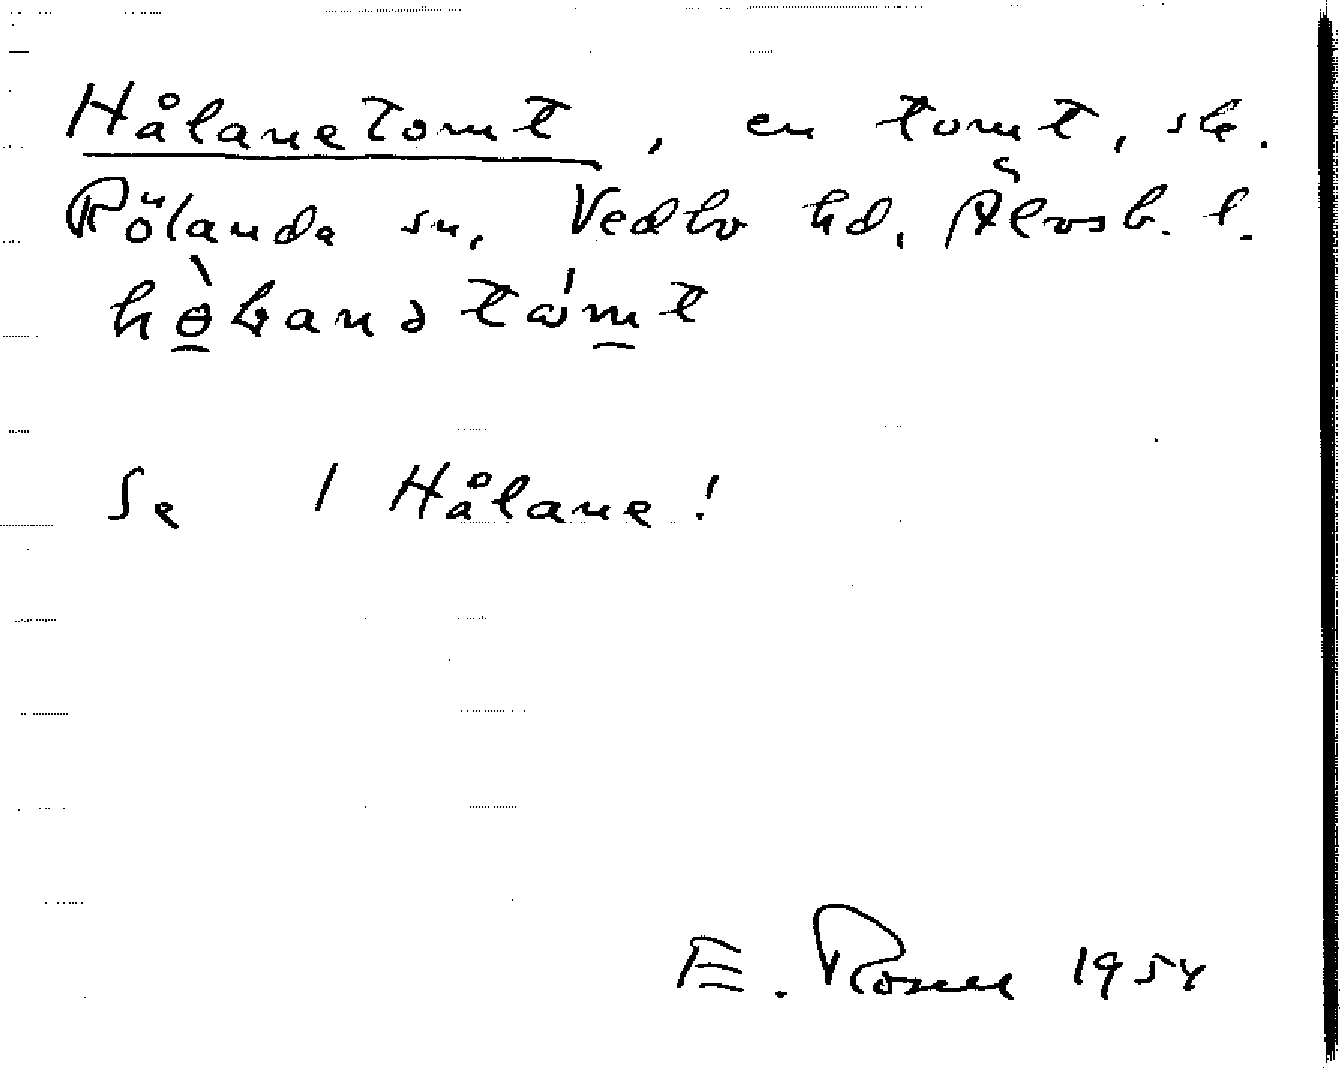 Hålanetomt, en tomt, sk.
Rölanda sn, Vedbo hd, Älvsb. l.
Se 1 Hålane!
E. Rosell 1954